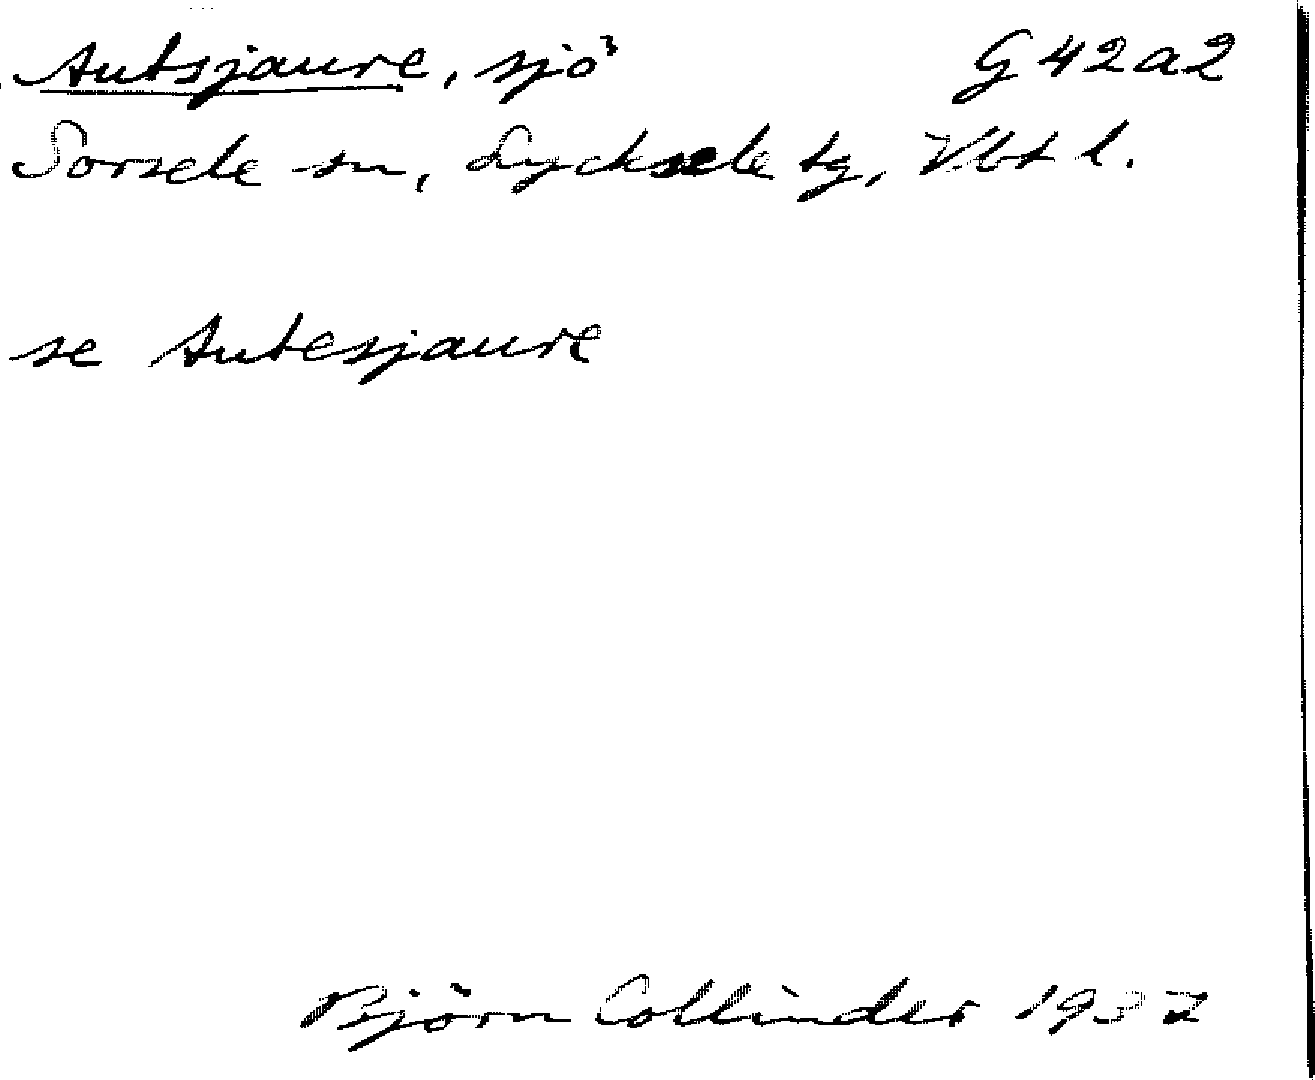 Autsjaure, sjö G 42 a 2
Sorsele sn, Lycksele tg, Vbt l.
se Autesjaure
Björn Collinder 1937